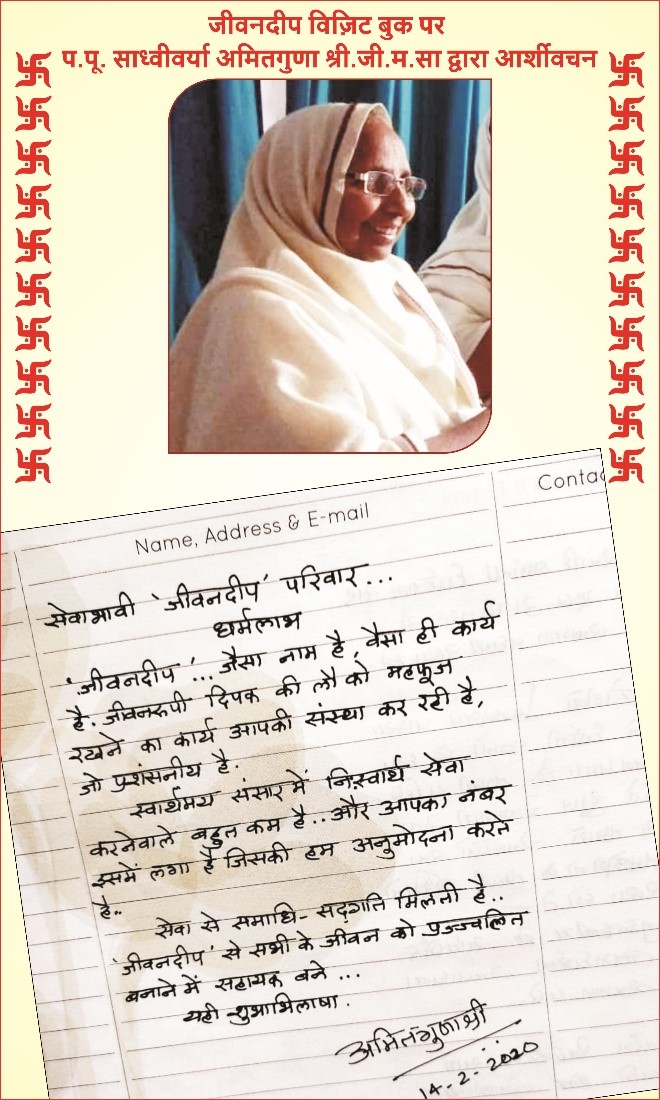 जीवनदीप विज़िट बुक पर
प.पू. साध्वीवर्या अमितगुणा श्री.जी.म.सा द्वारा आर्शीवचन
Name, Address & E-mail
Contac
सेवाभावी 'जीवनदीप' परिवार...
धर्मलाभ
'जीवनदीप'... जैसा नाम है, वैसा ही कार्य
है. जीवनरूपी दिपक की लौ को महफूज
रखने का कार्य आपकी संस्था कर रही है,
जो प्रशंसनीय है.
स्वार्थमय संसार में निःस्वार्थ सेवा
करनेवाले बहुत कम है.. और आपका नंबर
इसमें लगा है जिसकी हम अनुमोदना करते
है..
सेवा से समाधि - सद्गति मिलती है..
'जीवनदीप' से सभी के जीवन को प्रज्ज्वलित
बनाने में सहायक बने ...
यही शुभाभिलाषा.
अमितगुणाश्री
14-2-2020